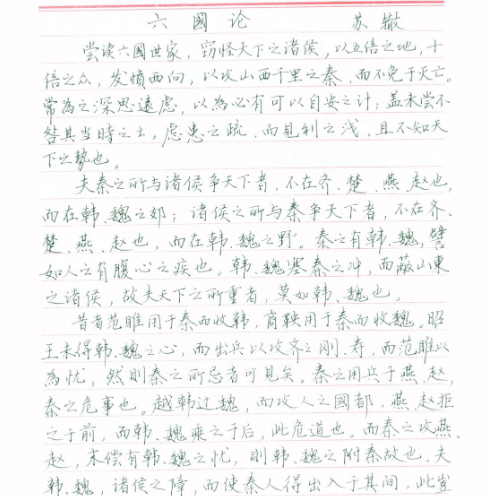 六國论 苏辙
尝读六國世家，窃怪天下之诸侯，以五倍之地，十
倍之众，发愤西向，以攻山西千里之秦，而不免于灭亡。
常為之深思遠虑，以為必有可以自安之计；盖未尝不
咎其当時之士，虑患之疏，而見利之浅，且不知天
下之勢也。
夫秦之所与诸侯争天下者，不在齐、楚、燕、赵也，
而在韩、魏之郊；诸侯之所与秦争天下者，不在齐、
楚、燕、赵也，而在韩、魏之野。秦之有韩、魏，譬
如人之有腹心之疾也。韩、魏塞秦之冲，而蔽山東
之诸侯，故夫天下之所重者，莫如韩、魏也。
昔者范雎用于秦而收韩，商鞅用于秦而收魏。昭
王未得韩、魏之心，而出兵以攻齐之刚、寿，而范雎以
為忧，然则秦之所忌者可見矣。秦之用兵于燕、赵，
秦之危事也。越韩过魏，而攻人之國都，燕、赵拒
之于前，而韩、魏乘之于后，此危道也。而秦之攻燕、
赵，未偿有韩、魏之忧，则韩、魏之附秦故也。夫
韩、魏，诸侯之障，而使秦人得出入于其间，此岂